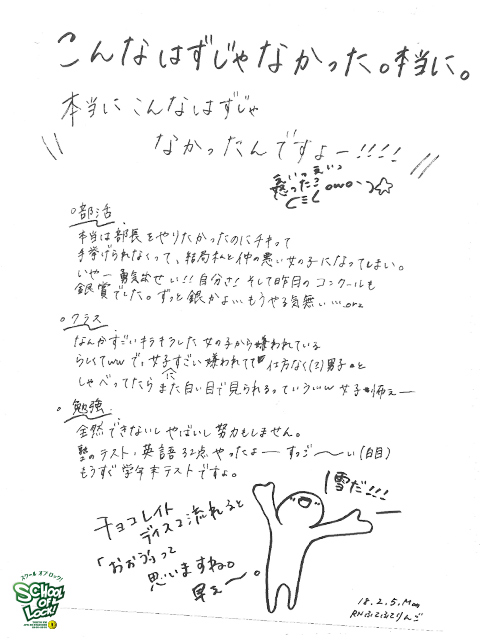 こんなはずじゃなかった。本当に。
本当にこんなはずじゃ
なかったんですよー!!!!
。部活
本当は部長をやりたかったのにチキって
手挙げられなくって、結局私と仲の悪い女の子になってしまい。
いやー勇気出せい!!自分さ!そして昨日のコンクールも
銀賞でした。ずっと銀かよ…もうやる気無い….orz
。クラス
なんかすごいキラキラした女の子から嫌われている
らしくてwwで、女子すごい嫌われてて仕方なく(?)男子と
しゃべってたらまた白い目で見られるっていうw女子怖ぇー
。勉強
全然できないしやばいし努力もしません。
塾のテスト、英語32点やったよーすっごーーい(白目)
もうすぐ学年末テストですよ。
雪だ!!!
チョコレイト
ディスコ流れると
「おおぅって
思いますね。
早ぇー。
18.2.5.Mon
SCHOOL OF LOCK!
スクール オブ ロック!